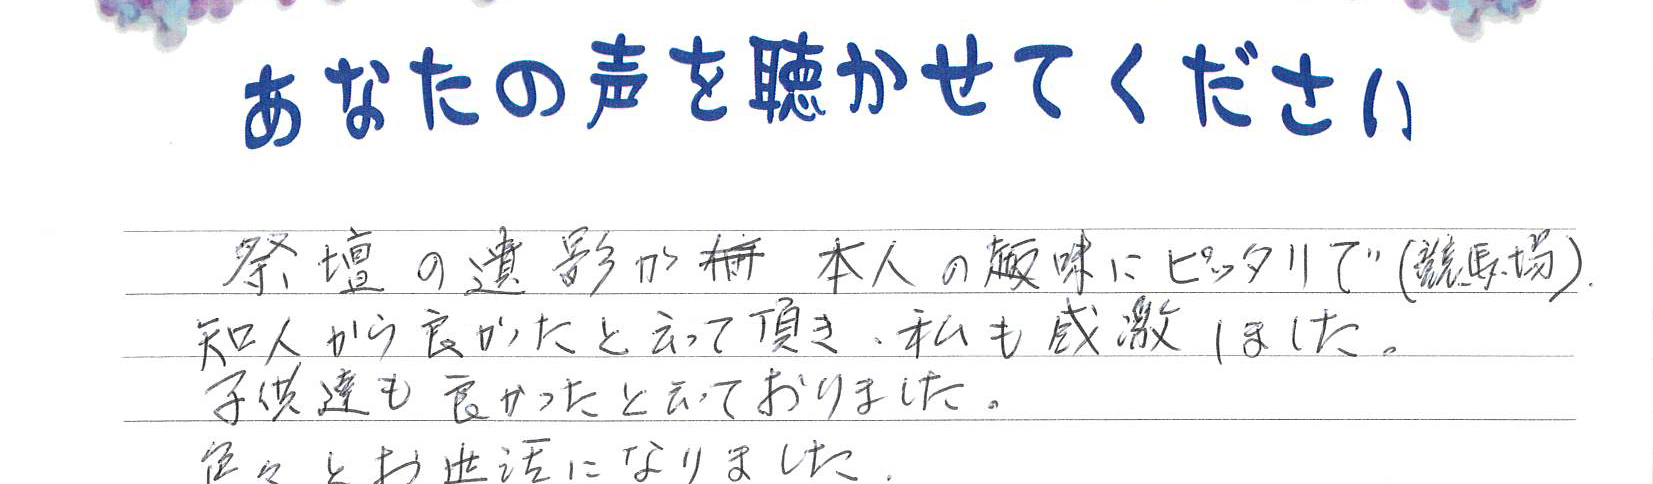 あなたの声を聴かせてください
祭壇の遺影が 本人の趣味にピッタリで(競馬場).
知人から良かったと云って頂き、私も感激しました。
子供達も良かったと云っておりました。
色々とお世話になりました.